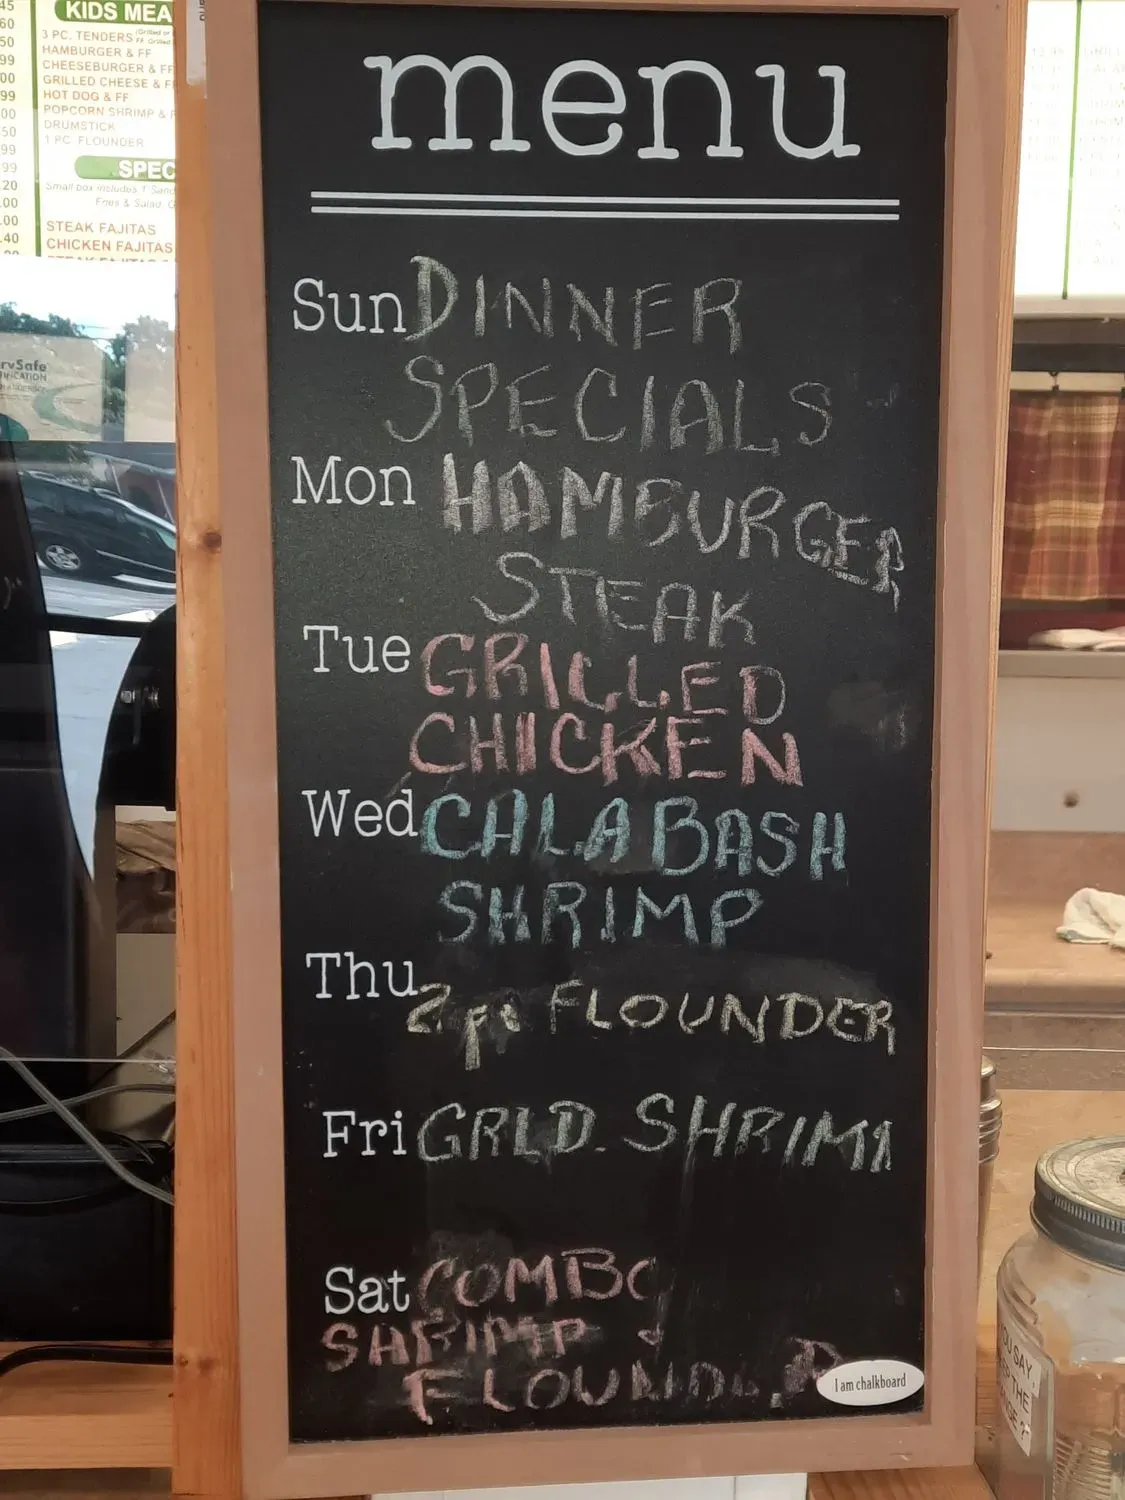 KIDS MEA
3 PC. TENDERS
HAMBURGER & FF
CHEESEBURGER & FF
GRILLED CHEESE & F
HOT DOG & FF
POPCORN SHRIMP &
DRUMSTICK
1 PC. FLOUNDER
SPEC
Small box includes 1
Fries & Salad.
STEAK FAJITAS
CHICKEN FAJITAS
rvSafe
menu
Sun DINNER
SPECIALS
Mon HAMBURGER
STEAK
Tue GRILLED
CHICKEN
Wed CALABASH
SHRIMP
Thu 2 pc FLOUNDER
Fri GRLD. SHRIMP
Sat COMBO
SHRIMP &
FLOUNDER
I am chalkboard